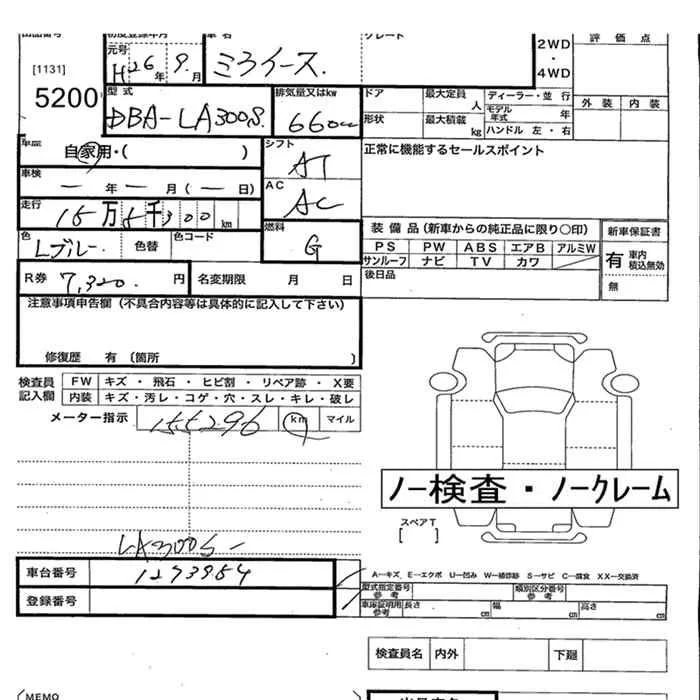 出品番号 初度登録年月 車名 グレード
[1131]
5200
元号 H 26年 9月 ミライース.
2WD・4WD
評価点
外装 内装
型式 DBA-LA300S.
排気量又はkw 660cc
ドア 最大定員 人 ディーラー・並行
モデル年式 年
形状 最大積載 kg ハンドル 左・右
車歴 自家用・( )
シフト AT
正常に機能するセールスポイント
車検 ー年ー月(ー日)
AC AC
走行 15万5千300km
燃料 G
色 Lブルー 色替 色コード
装備品(新車からの純正品に限り○印) 新車保証書
PS PW ABS エアB アルミW
サンルーフ ナビ TV カワ
有 車内積込無効
無
R券 7,320.円 名変期限 月 日
後日品
注意事項申告欄(不具合内容等は具体的に記入して下さい)
修復歴 有〔箇所 〕
検査員記入欄
FW キズ・飛石・ヒビ割・リペア跡・X要
内装 キズ・汚レ・コゲ・穴・スレ・キレ・破レ
メーター指示 155296 km マイル
ノー検査・ノークレーム
スペアT
[ ]
LA300S-
車台番号 1273954
登録番号
A−キズ E−エクボ U−凹み W−補修跡 S−サビ C−腐食 XX−交換済
型式指定番号 参考 類別区分番号 参考
車庫証明用 参考 長さ cm 幅 cm 高さ cm
検査員名 内外 下廻
MEMO